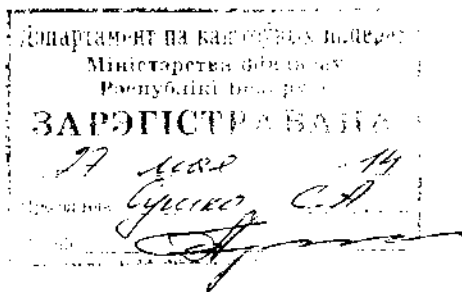 Дэпартамент па каштоўных паперах
Міністэрства фінансаў
Рэспублікі Беларусь
ЗАРЭГІСТРАВАНА
27 мая 14
Сушко С.А